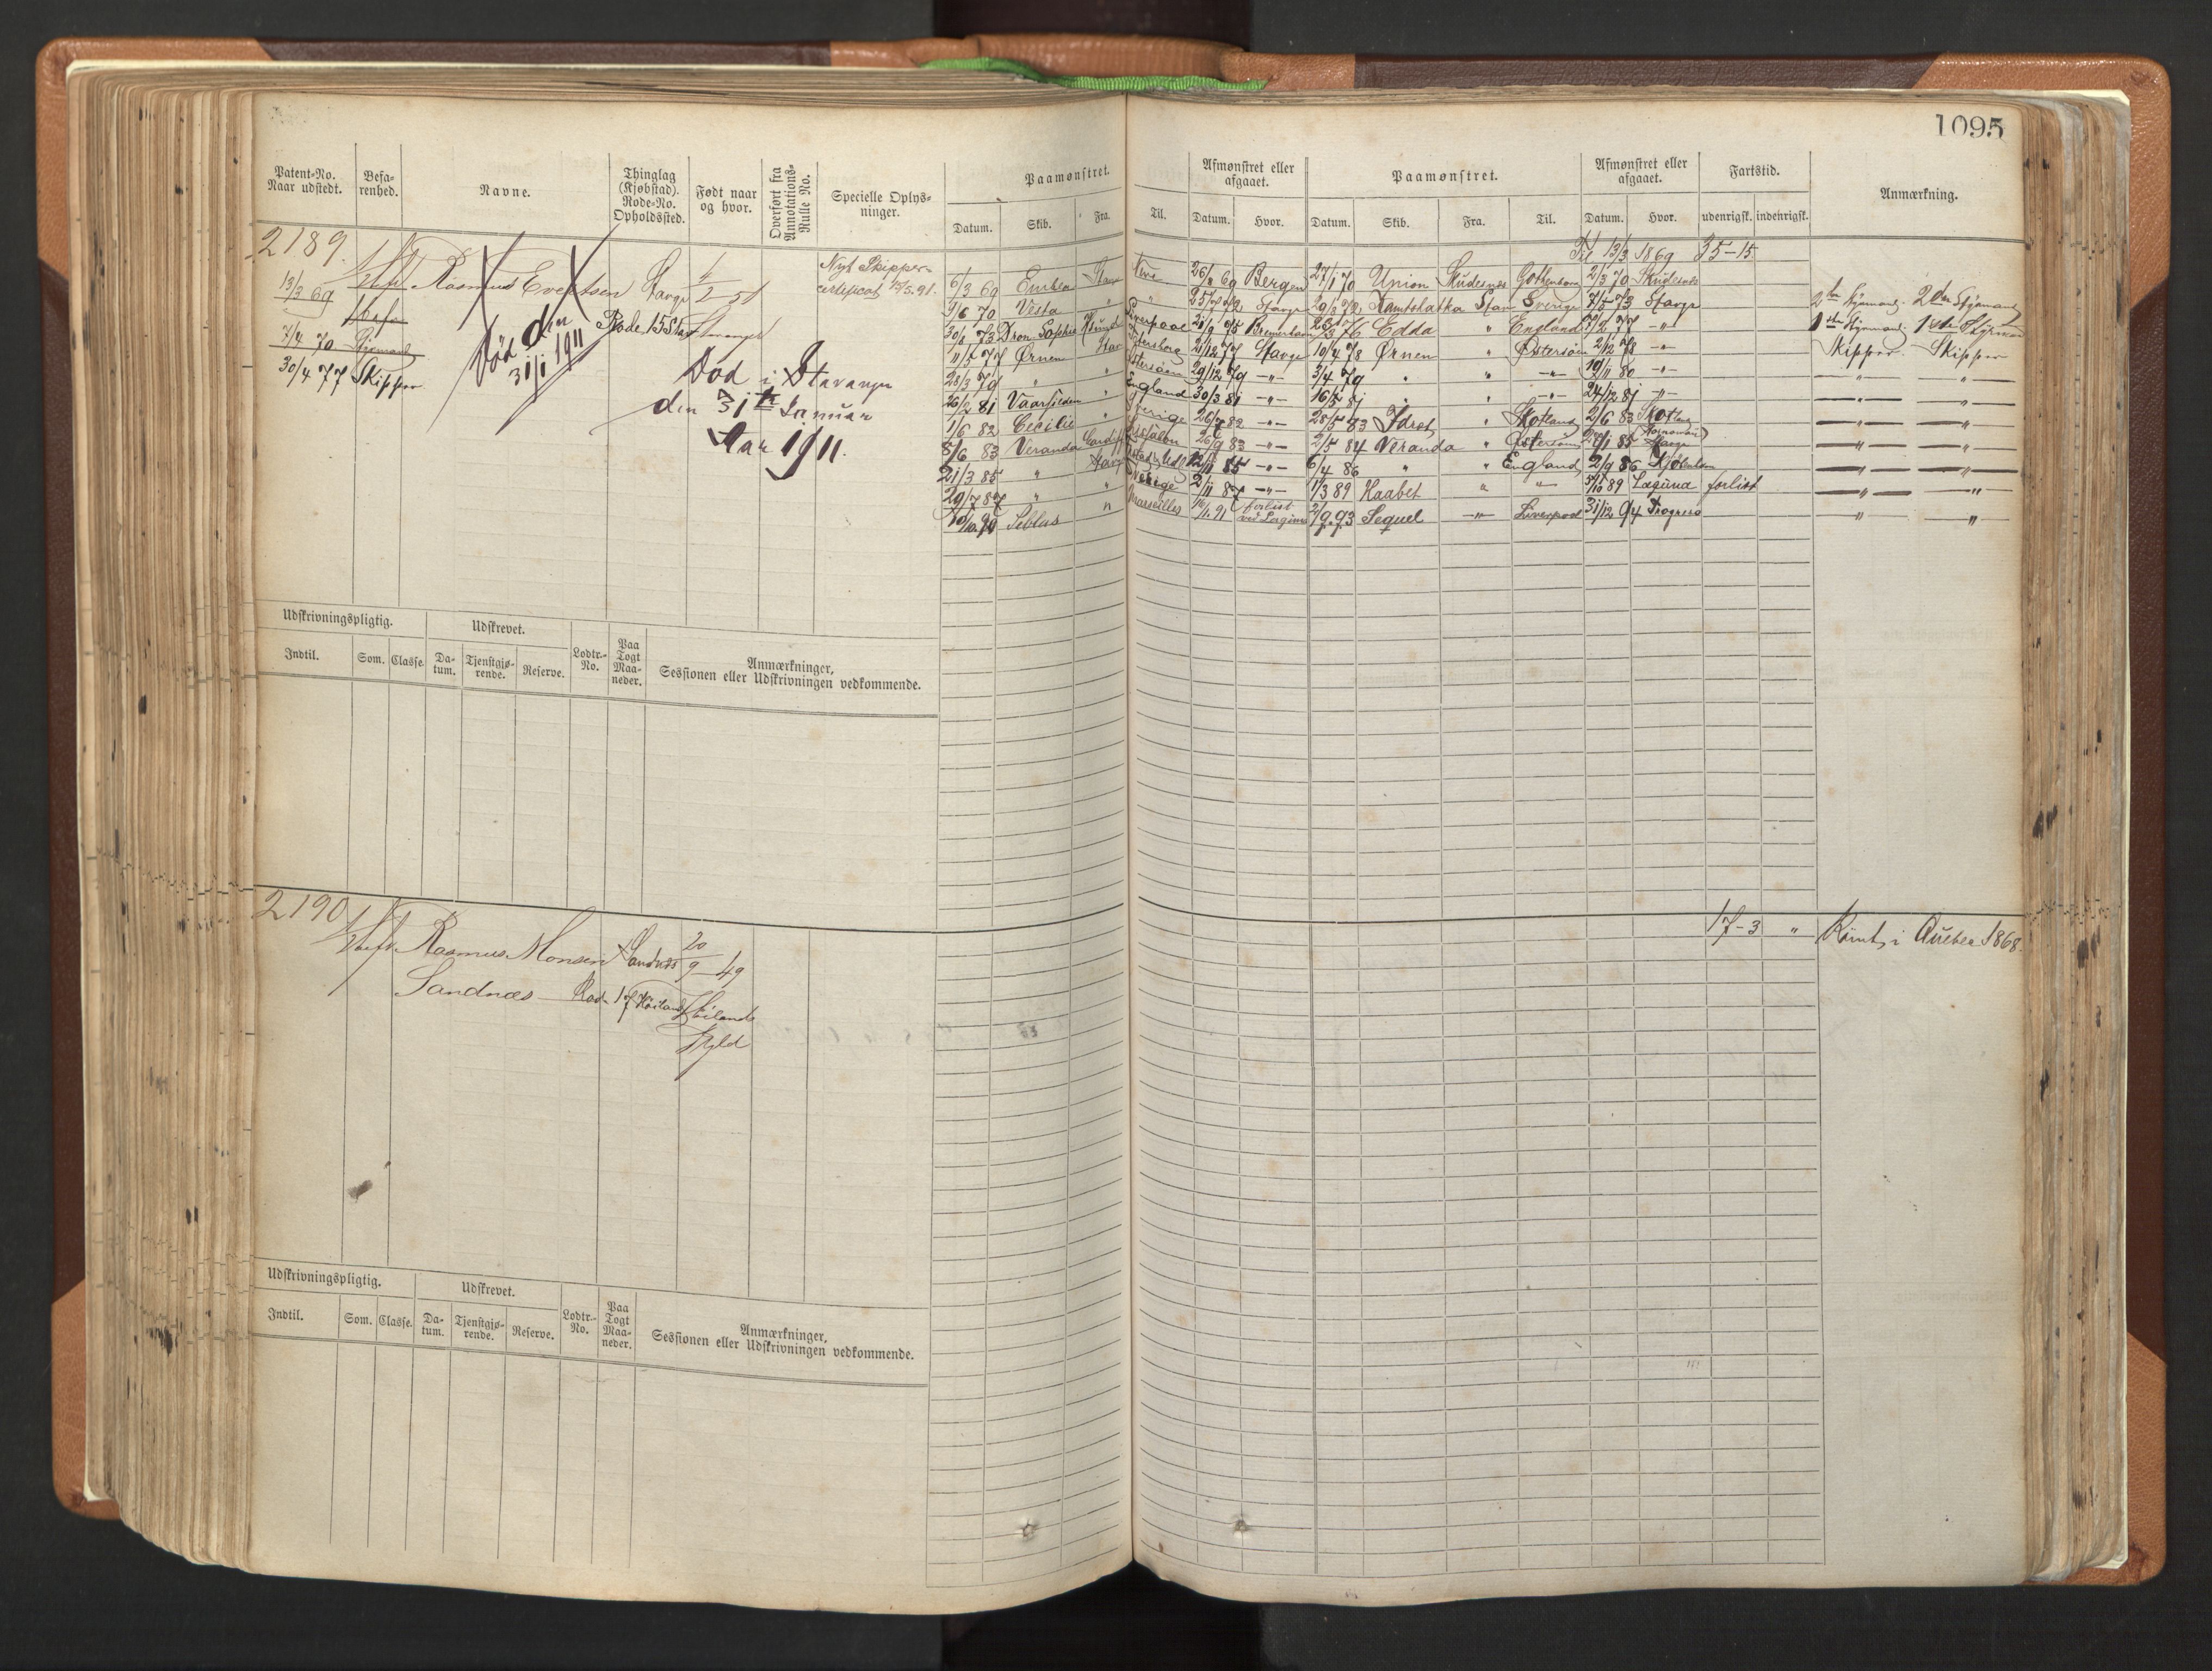 1095
Patent-No. Naar udstedt.
Befarenhed.
Navne.
Thinglag (Kjøbstad). Rode-No. Opholdssted.
Født naar og hvor.
Overført fra Annotations-Rulle No.
Specielle Oplysninger.
Paamønstret.
Afmønstret eller afgaaet.
Paamønstret.
Afmønstret eller afgaaet.
Fartstid.
Anmærkning.
Datum. Skib. Fra. Til. Datum. Hvor. Datum. Skib. Fra. Til. Datum. Hvor. udenrigsk. indenrigsk.
2189.
Til 13/3 1869 35-15
13/3 69
Rasmus Evertsen Stavgr
2 51
Nyt Skippercertificat 15/5.91.
7/4 70 Styrmand
30/4 77 Skipper
Død den 31/1 1911
Rode 15 Stav
Død i Stavanger
den 31te Januar
Aar 1911.
6/3 69 Stav 26/8 69 Bergen 27/1 70 Union Skudesnes Gothenborg 2/3 70 Skudesnes
9/6 70 Vesta " " 25/7 72 Stavgr 29/8 72 Kamtschatka Stav Sverige 7/5 73 Stavgr 2den Styrmand. 2den Styrmand
30/8 73 Dron Sophie Liverpool 21/9 75 Bremerhaven 23/3 76 Edda " England 7/2 77 -"- 1ste Styrmand. 1ste Styrmand
11/5 77 Ørnen Stav Petersborg 21/12 77 Stavgr 10/4 78 Ørnen " Østersøen 2/12 78 -"- Skipper. Skipper
28/3 79 " " Østersøen 29/12 79 -"- 3/4 79 " " -"- 19/11 80 -"- -"- -"-
26/2 81 Vaarsilden " England 30/3 81 -"- 16/5 81 " " -"- 24/12 81 -"- -"- -"-
1/6 82 Cecilie " Sverige 26/7 82 -"- 28/5 83 Idræt " Skotland 2/6 83 Skotland -"- -"-
8/6 83 Veranda Cardiff 26/9 83 -"- 2/5 84 Veranda " Østersøen 29/1 85 Stavgr -"- -"-
21/3 85 " Stavgr 12/11 85 -"- 6/4 86 " " England 2/9 86 Kjøbenhavn -"- -"-
29/7 87 " " Sverige 2/11 87 -"- 1/3 89 Haabet " -"- 5/10 89 Laguna forlist -"- -"-
10/10 90 " Marseilles 91 forlist ved Laguna 2/9 93 Sequel -"- Liverpool 31/12 94 Progreso " -"-
Udskrivningspligtig. Udskrevet. Lodtr.-No. Paa Togt Maaneder. Anmærkninger, Sessionen eller Udskrivningen vedkommende.
Indtil. Som. Classe. Datum. Tjenstgjørende. Reserve.
2190
Rasmus Monsen Sandnæs 20/9 49
17-3 " Rømt i Quebec 1868.
Sandnæs Rode 17 Høiland Høilands
Udskrivningspligtig. Udskrevet. Lodtr.-No. Paa Togt Maaneder. Anmærkninger, Sessionen eller Udskrivningen vedkommende.
Indtil. Som. Classe. Datum. Tjenstgjørende. Reserve.